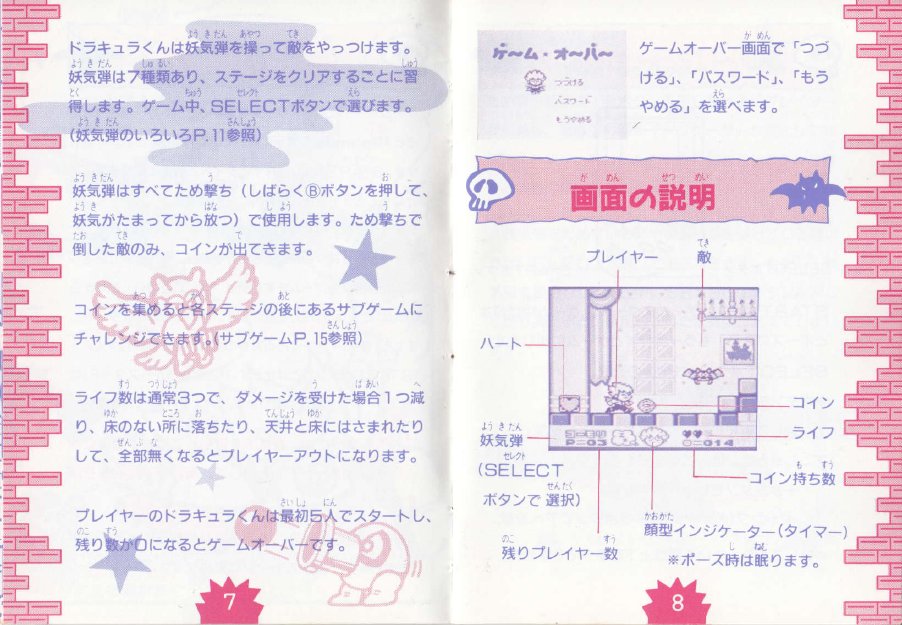 ドラキュラくんは妖気弾を操って敵をやっつけます。
妖気弾は7種類あり、ステージをクリアするごとに習
得します。ゲーム中、SELECTボタンで選びます。
(妖気弾のいろいろP.11参照)
妖気弾はすべてため撃ち(しばらくⒷボタンを押して、
妖気がたまってから放つ)で使用します。ため撃ちで
倒した敵のみ、コインが出てきます。
コインを集めると各ステージの後にあるサブゲームに
チャレンジできます。(サブゲームP.15参照)
ライフ数は通常3つで、ダメージを受けた場合1つ減
り、床のない所に落ちたり、天井と床にはさまれたり
して、全部無くなるとプレイヤーアウトになります。
プレイヤーのドラキュラくんは最初5人でスタートし、
残り数が0になるとゲームオーバーです。
7
ゲーム・オーバー
つづける
パスワード
もうやめる
ゲームオーバー画面で「つづ
ける」、「パスワード」、「もう
やめる」を選べます。
画面の説明
プレイヤー
敵
ハート
コイン
ライフ
妖気弾
(SELECT
ボタンで選択)
P=03
=014
コイン持ち数
顔型インジケーター(タイマー)
残りプレイヤー数
※ポーズ時は眠ります。
8